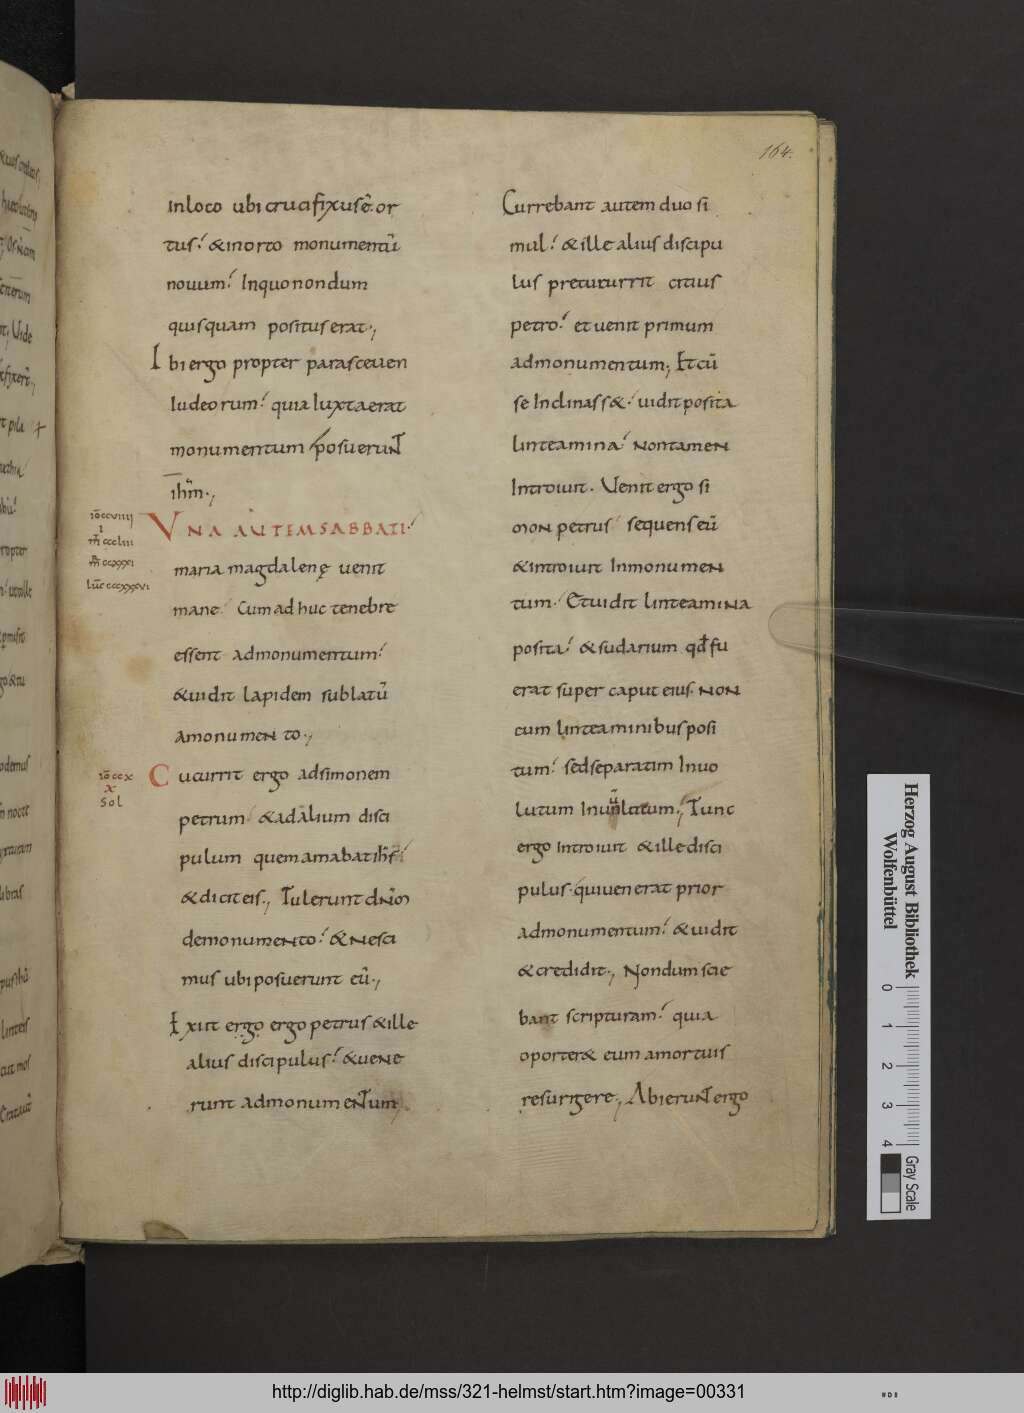 164.
inloco ubi crucifixus ē. or
tus. & inorto monumentū
nouum. Inquo nondum
quisquam positus erat.,
Ibi ergo propter parasceuen
Iudeorum. quia Iuxta erat
monumentum posuerunt
ihm̄.,
iō ccviiii
i
m̄ cccliii
m̄r ccxxxi
luc̄ cccxxxvi
VNA AUTEM SABBATI.
maria magdalenę uenit
mane. Cum adhuc tenebre
essent admonumentum.
& uidit lapidem sublatū
amonumento.,
iō ccx
x
Sol
Cucurrit ergo adsimonem
petrum. & ad alium disci
pulum quem amabat ihs̄.
& dicit eis., Tulerunt dn̄m
demonumento. & nesci
mus ubi posuerunt eū.,
Exiit ergo ergo petrus & ille
alius discipulus. & uene
runt admonumentum,
Currebant autem duo si
mul. & ille alius discipu
lus precucurrit citius
petro. et uenit primum
admonumentum, Et cū
se Inclinass&. uidit posita
linteamina. non tamen
Introiuit. Uenit ergo si
mon petrus sequens eū
& introiuit Inmonumen
tum. Et uidit linteamina
posita. & sudarium qđ fu
erat super caput eius. non
cum linteaminibus posi
tum. sed separatim Inuo
lutum In unū locum., Tunc
ergo introiuit & ille disci
pulus. qui uenerat prior
admonumentum. & uidit
& credidit., Nondum scie
bant scripturam. quia
oporter& eum amortuis
resurgere., Abierunt ergo
Herzog August Bibliothek
Wolfenbüttel
0 1 2 3 4
Gray Scale
http://diglib.hab.de/mss/321-helmst/start.htm?image=00331